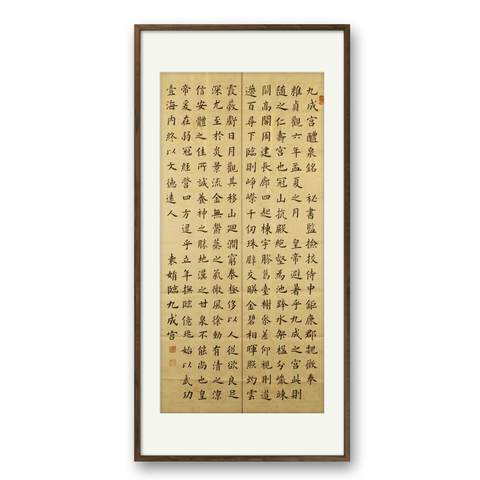 九成宮醴泉銘 祕書監撿挍侍中鉅鹿郡魏徵奉
維貞觀六年孟夏之月 皇帝避暑乎九成之宮此則
隨之仁壽宮也冠山抗殿絕壑為池跨水架楹分巖竦
闕高閣周建長廊四起棟宇膠葛臺榭參差仰視則迢
遰百尋下臨則崢嶸千仞珠璧交暎金碧相暉照灼雲
霞蔽虧日月觀其移山迴澗窮泰極侈以人從欲良足
深尤至於炎景流金無鬱蒸之氣微風徐動有清之涼
信安體之佳所誠養神之勝地漢之甘泉不能尚也皇
帝爰在弱冠經營四方逮乎立年撫臨億兆始以武功
壹海內終以文德遠人
臨九成宮